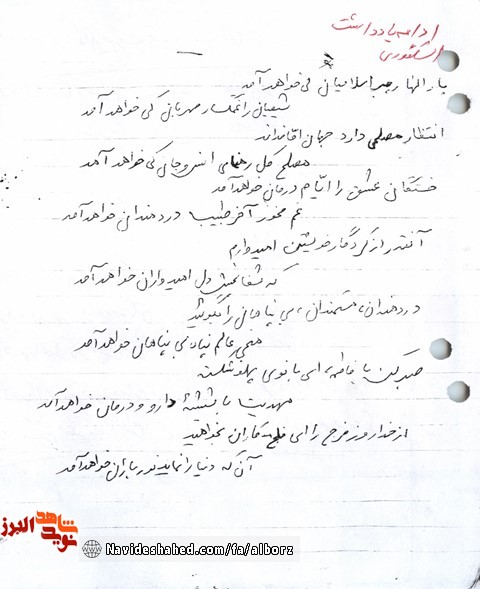 ادامه یادداشت
بارالها رجب اسلامیان کی خواهد آمد
شیعیان را غمگسار مهربان کی خواهد آمد
انتظار مصلحی دارد جهان
مصلح کل رهنمای انس و جان کی خواهد آمد
خستگان عشق را ایام درمان خواهد آمد
غم مخور آخر طبیب دردمندان خواهد آمد
آنقدر از کردگار خویشتن امیدوارم
که شفابخش دل امیدواران خواهد آمد
دردمندان، مستمندان، بی پناهان را بگوئید
منجی عالم پناه بی پناهان خواهد آمد
صبر کن یا فاطمه، ای بانوی پهلو شکسته
مهدیت با شیشهٔ دارو و درمان خواهد آمد
از خدا روز فرج را ای بخواهید
آن که دنیا را نماید نورباران خواهد آمد
نوید شاهد البرز
Navideshahed.com/fa/alborz